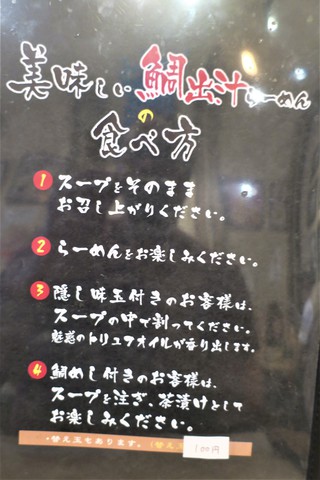 美味しい鯛出汁らーめん
の
食べ方
1 スープをそのまま
お召し上がりください。
2 らーめんをお楽しみください。
3 隠し味玉付きのお客様は、
スープの中で割ってください。
魅惑のトリュフオイルが香り出します。
4 鯛めし付きのお客様は、
スープを注ぎ、茶漬けとして
お楽しみください。
・替え玉もあります。(替え玉 100円